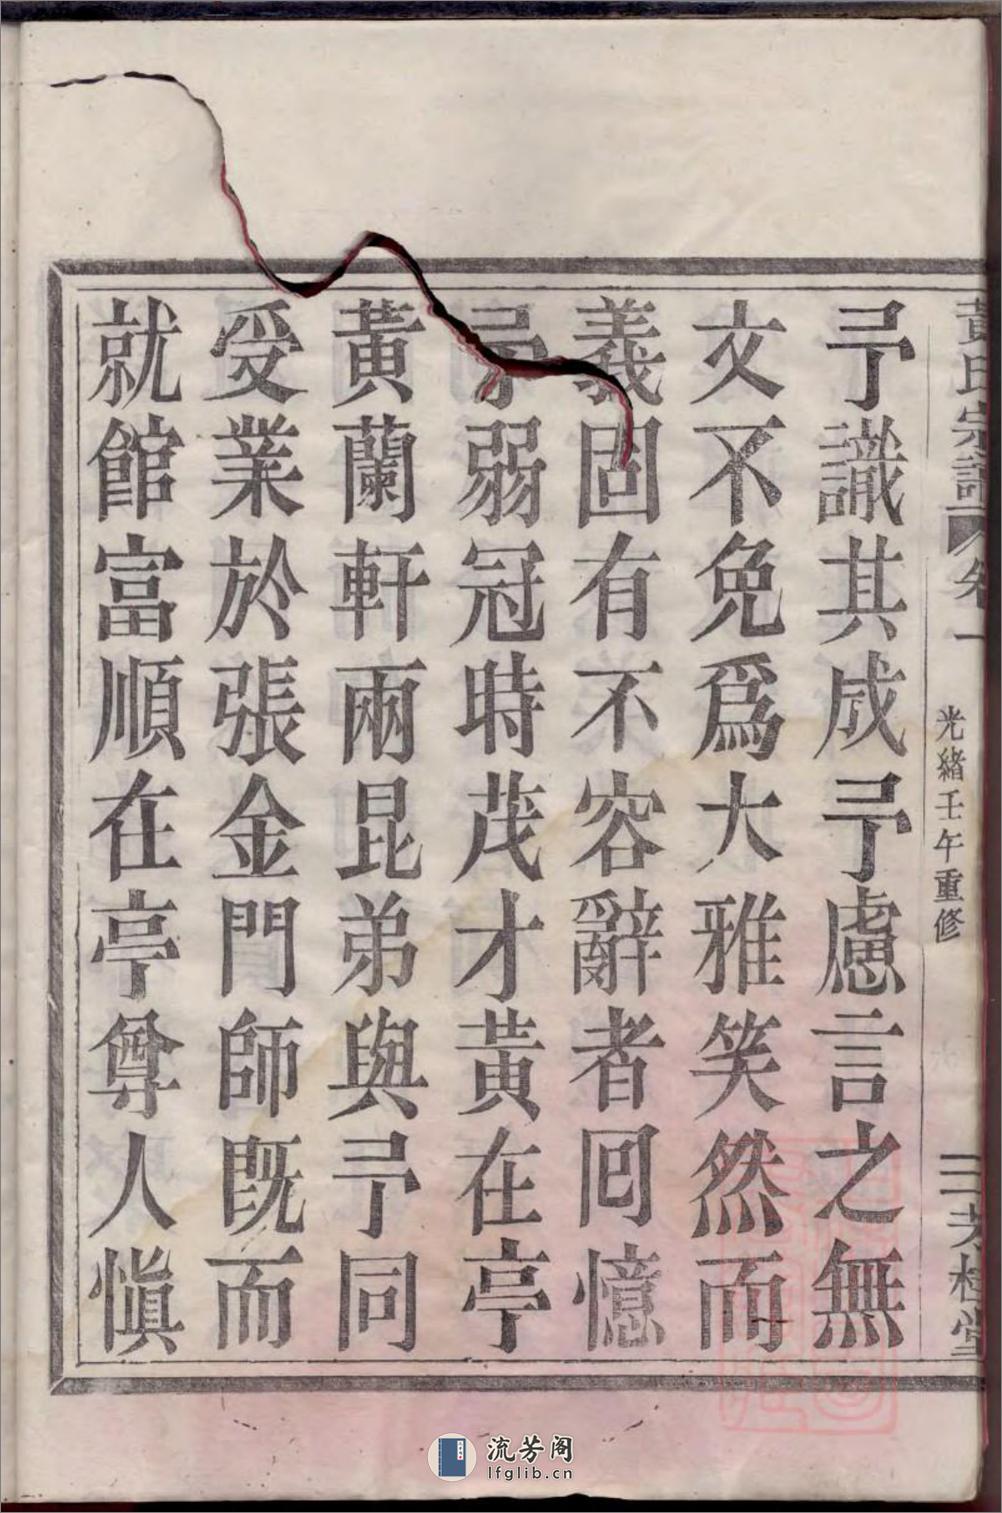 黃氏宗譜 卷一 光緒壬午重修 三大槐堂
予識其成予慮言之無
文不免爲大雅笑然而
義固有不容辭者囘憶
予弱冠時茂才黃在亭
黃蘭軒兩昆弟與予同
受業於張金門師既而
就館富順在亭尊人愼
流芳阁
lfglib.cn